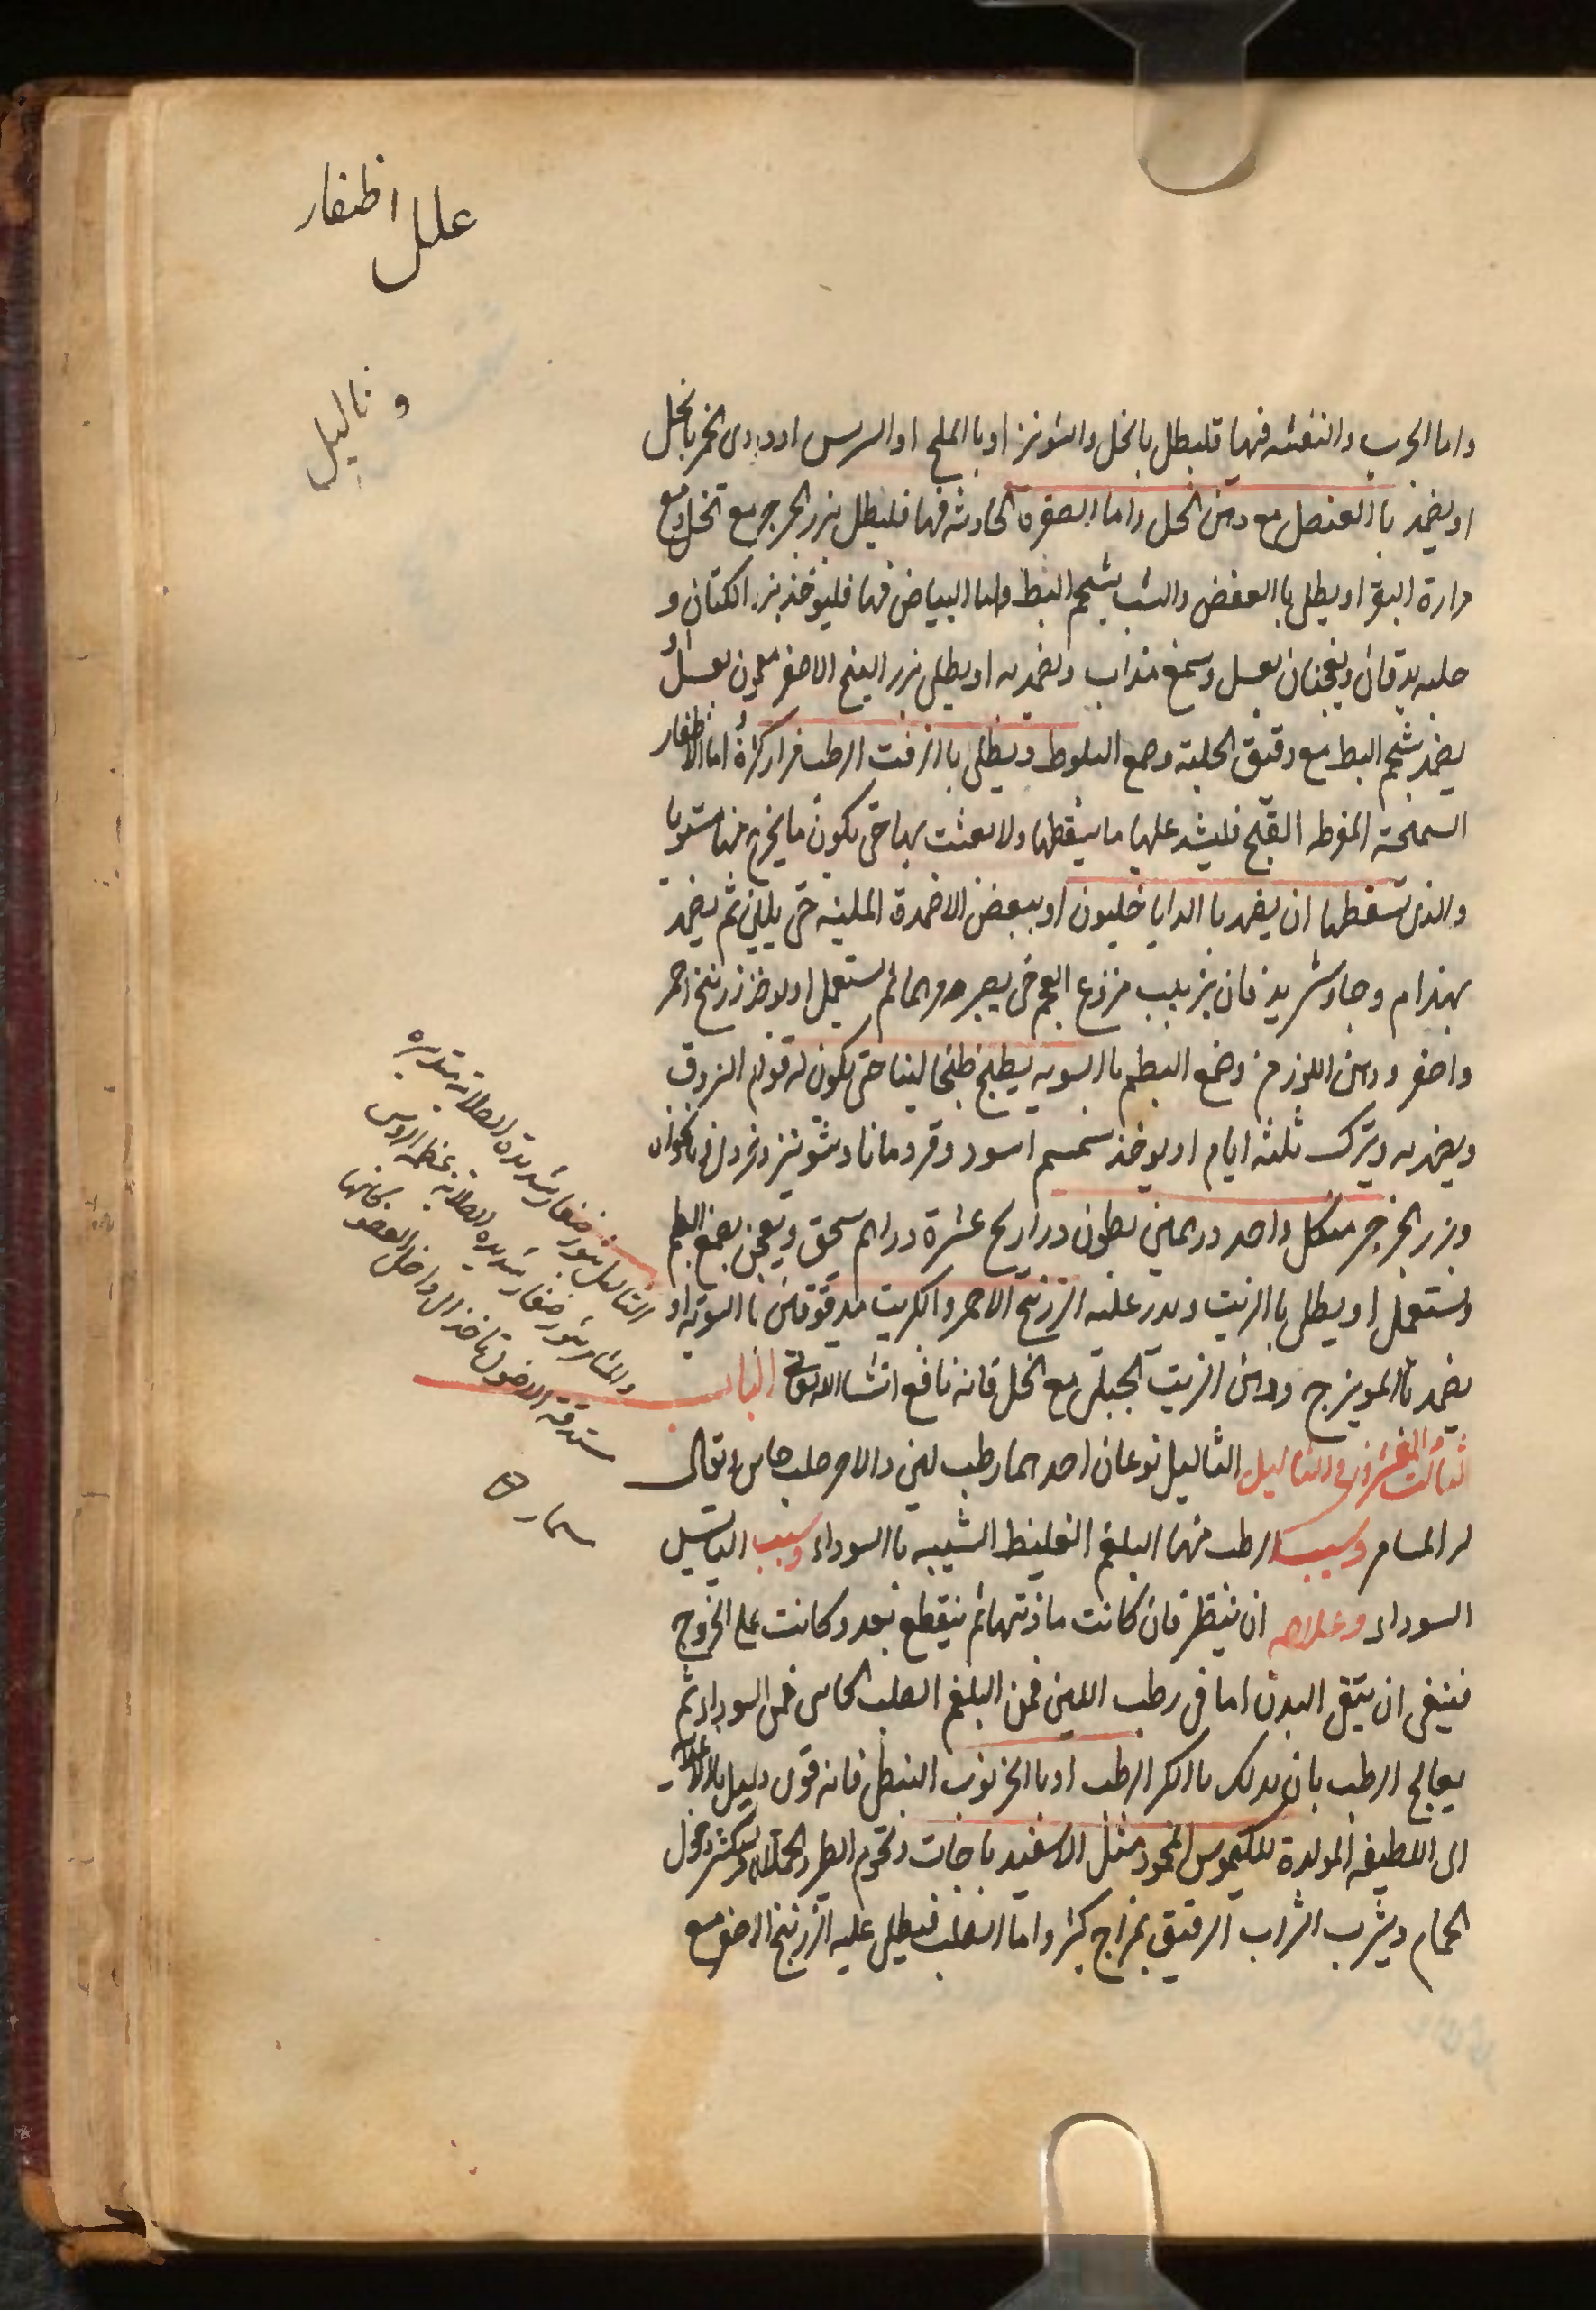 علل اظفار
و ثاليل
واما الجرب والتقشر فيها فليطل بالخل والشونيز او بالملح او الترمس او دردى الخمر بالخل
او يضمد باالعنصل مع دهن الخل واما الصفرة الحادثة فيها فليطل بزر الجرجير مع الخل ومع
مرارة البقر او يطلى باالعفص والشب بشحم البط واما البياض فيها فليوخذ بزر الكتان و
حلبه يدقان ويعجنان بعسل وسمغ مذاب ويضمد به او يطلى بزر البنج الاصفر معجون بعسل او
يضمد بشحم البط مع دقيق الحلبة وصمغ البلوط ويطلى باالزفت الرطب مرارا كثيرة اما الاظفار
السمجة المفرطه القبح فليشد عليها ما يسقطها ولا يعبث بها حتى يكون ما يخرج منها مستويا
والذى تسقطها ان يضمد با الداياخليون او ببعض الاضمدة الملينه حتى يلين ثم يضمد
بهذرام وجاوشير يدقان بزبيب منزوع العجم حتى يصير مرهما ثم يستعمل او يوخذ زرنيخ احمر
واصفر ودهن اللوز من وصمغ البطم باالسويه يطبخ طبخا لينا حتى يكون له قوام اللزوق
ويضمد به ويترك ثلثه ايام او يوخذ سمسم اسود وقردمانا وشونيز وخردل
وبزر الجرجير من كل واحد درهمين بطون ذراريح عشرة دراهم يسحق ويعجن بصمغ البطم
ويستعمل او يطلى باالزيت ويذر عليه الزرنيخ الاحمر والكبريت مدقوقين باالسويه او
يضمد باالمويزج ودهن الزيت الجبلى مع الخل فانه نافع انشاالله تعالى الباب
الثالث والعشرون فى الثاليل الثاليل نوعان احدهما رطب لين والاخر صلب جاس يقال
له المسامير وسبب الرطب منهما البلغم الغليظ الشبيه باالسوداء وسبب اليابس
السوداء وعلاجه ان ينظر فان كانت مادتها لم ينقطع بعد وكانت على الخروج
فينبغى ان ينقى البدن اما فى رطب اللين فمن البلغم الصلب الجاسى فمن السوداء ثم
يعالج الرطب بان يدلك باالكبر الرطب او باالخرنوب النبطى فانه قوى
الى اللطيفه المولدة للكيموس المحمود مثل الاسفيدباجات ولحوم الطير والحملان ويكثر دخول
الحمام ويشرب الشراب الرقيق بمزاج كثير واما الصلب فيطلى عليه الزرنيخ الاصفر مع
الثاليل بثور صغار شديدة الصلابة مستديره
والمسامير بثور صغار شديده الصلابة عظيمة الروس
مستدقة الاصول تاخذ الى داخل العضو كانها
مسمار